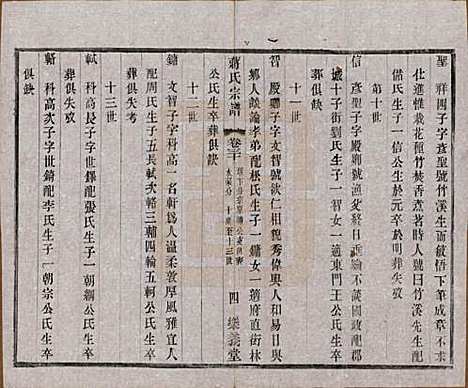 聖 祥四子字彥聖號竹溪生而敏悟下筆成章不求
仕進惟栽花藝竹焚香煮茗時人號曰竹溪先生配
儲氏生子一信公生於元卒於明葬失攷
第十世
信 彥聖子字殿
城十子街劉氏生子一智女一適東門王公氏生卒
葬俱缺
十一世
智 殿聰子字文智號欽仁相貌秀偉與人和易日與
鄉人談論孝弟配松氏生子一鏞女一適府直街林
公氏生卒葬俱缺
蔣氏宗譜
卷三十
四
樂義堂
十二世
鏞 文智子字科高一名軒為人溫柔敦厚風雅宜人
配周氏生子五長軾次輅三輔四輪五軻公氏生卒
葬俱失考
十三世
軾 科高長子字世鐸配張氏生子一朝綱公氏生卒
葬俱失攷
輅 科高次子字世錡配李氏生子一朝宗公氏生卒
俱缺